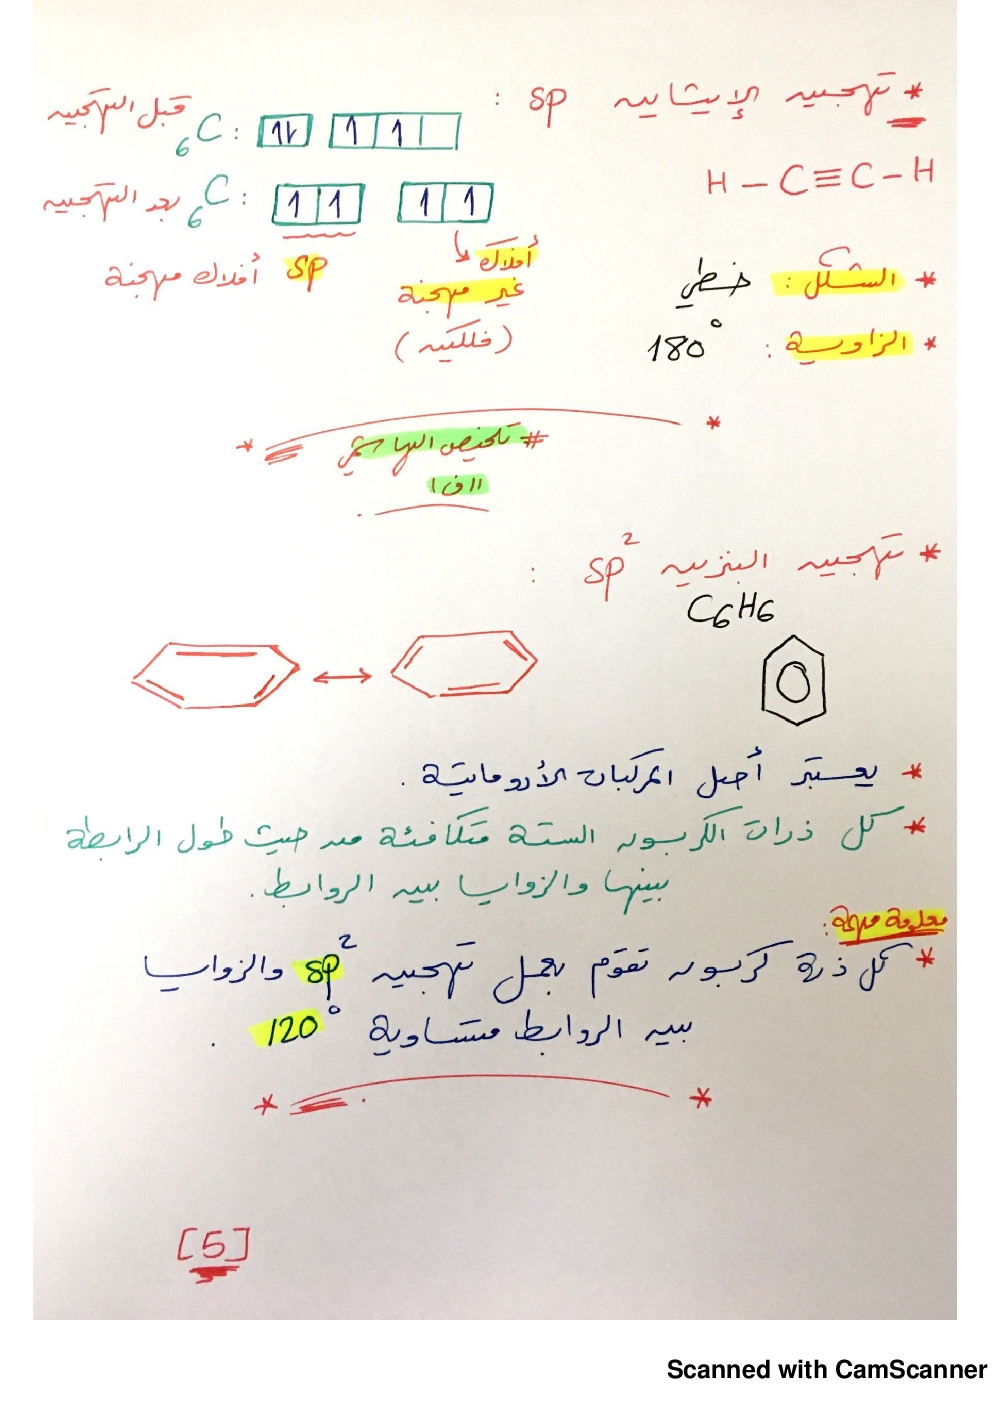 * تهجين الإيثاين sp :
H – C ≡ C – H
قبل التهجين ₆C : 1L 1 1
بعد التهجين ₆C : 1 1 1 1
sp أفلاك مهجنة
أفلاك
غير مهجنة
(فلكين)
* الشكل : خطي
* الزاوية : 180°
* *
# تلخيص الهاشمي
اا ف ا
* تهجين البنزين sp² :
C₆H₆
* يعتبر أصل المركبات الأروماتية .
* كل ذرات الكربون الستة متكافئة من حيث طول الرابطة
بينها والزوايا بين الروابط .
معلومة مهمة :
* كل ذرة كربون تقوم بعمل تهجين sp² والزوايا
بين الروابط متساوية 120° .
* *
[5]
Scanned with CamScanner